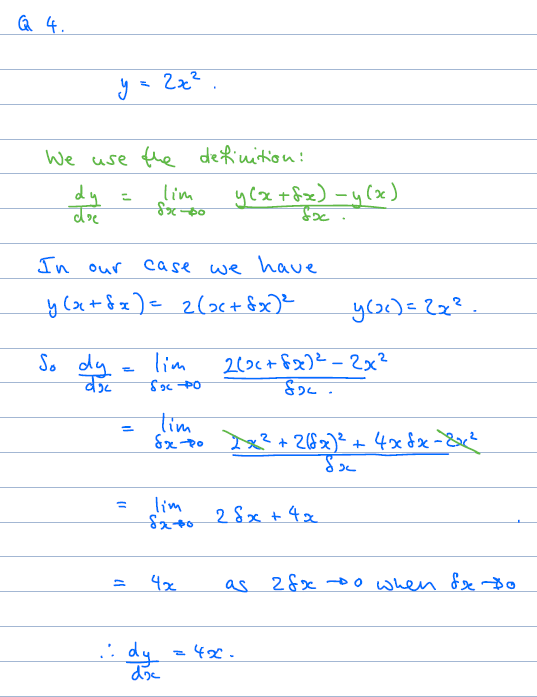 Q 4.
y = 2x².
We use the definition:
dy/dx = lim δx→0 (y(x+δx) − y(x))/δx.
In our case we have
y(x+δx) = 2(x+δx)² y(x) = 2x².
So dy/dx = lim δx→0 (2(x+δx)² − 2x²)/δx.
= lim δx→0 (2x² + 2(δx)² + 4xδx − 2x²)/δx
= lim δx→0 2δx + 4x
= 4x as 2δx → 0 when δx → 0
∴ dy/dx = 4x.